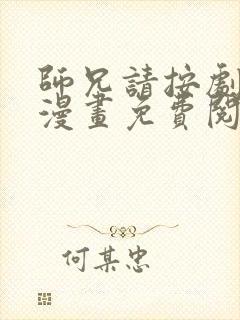 師兄請按劇
漫畫免費閱
何某忠